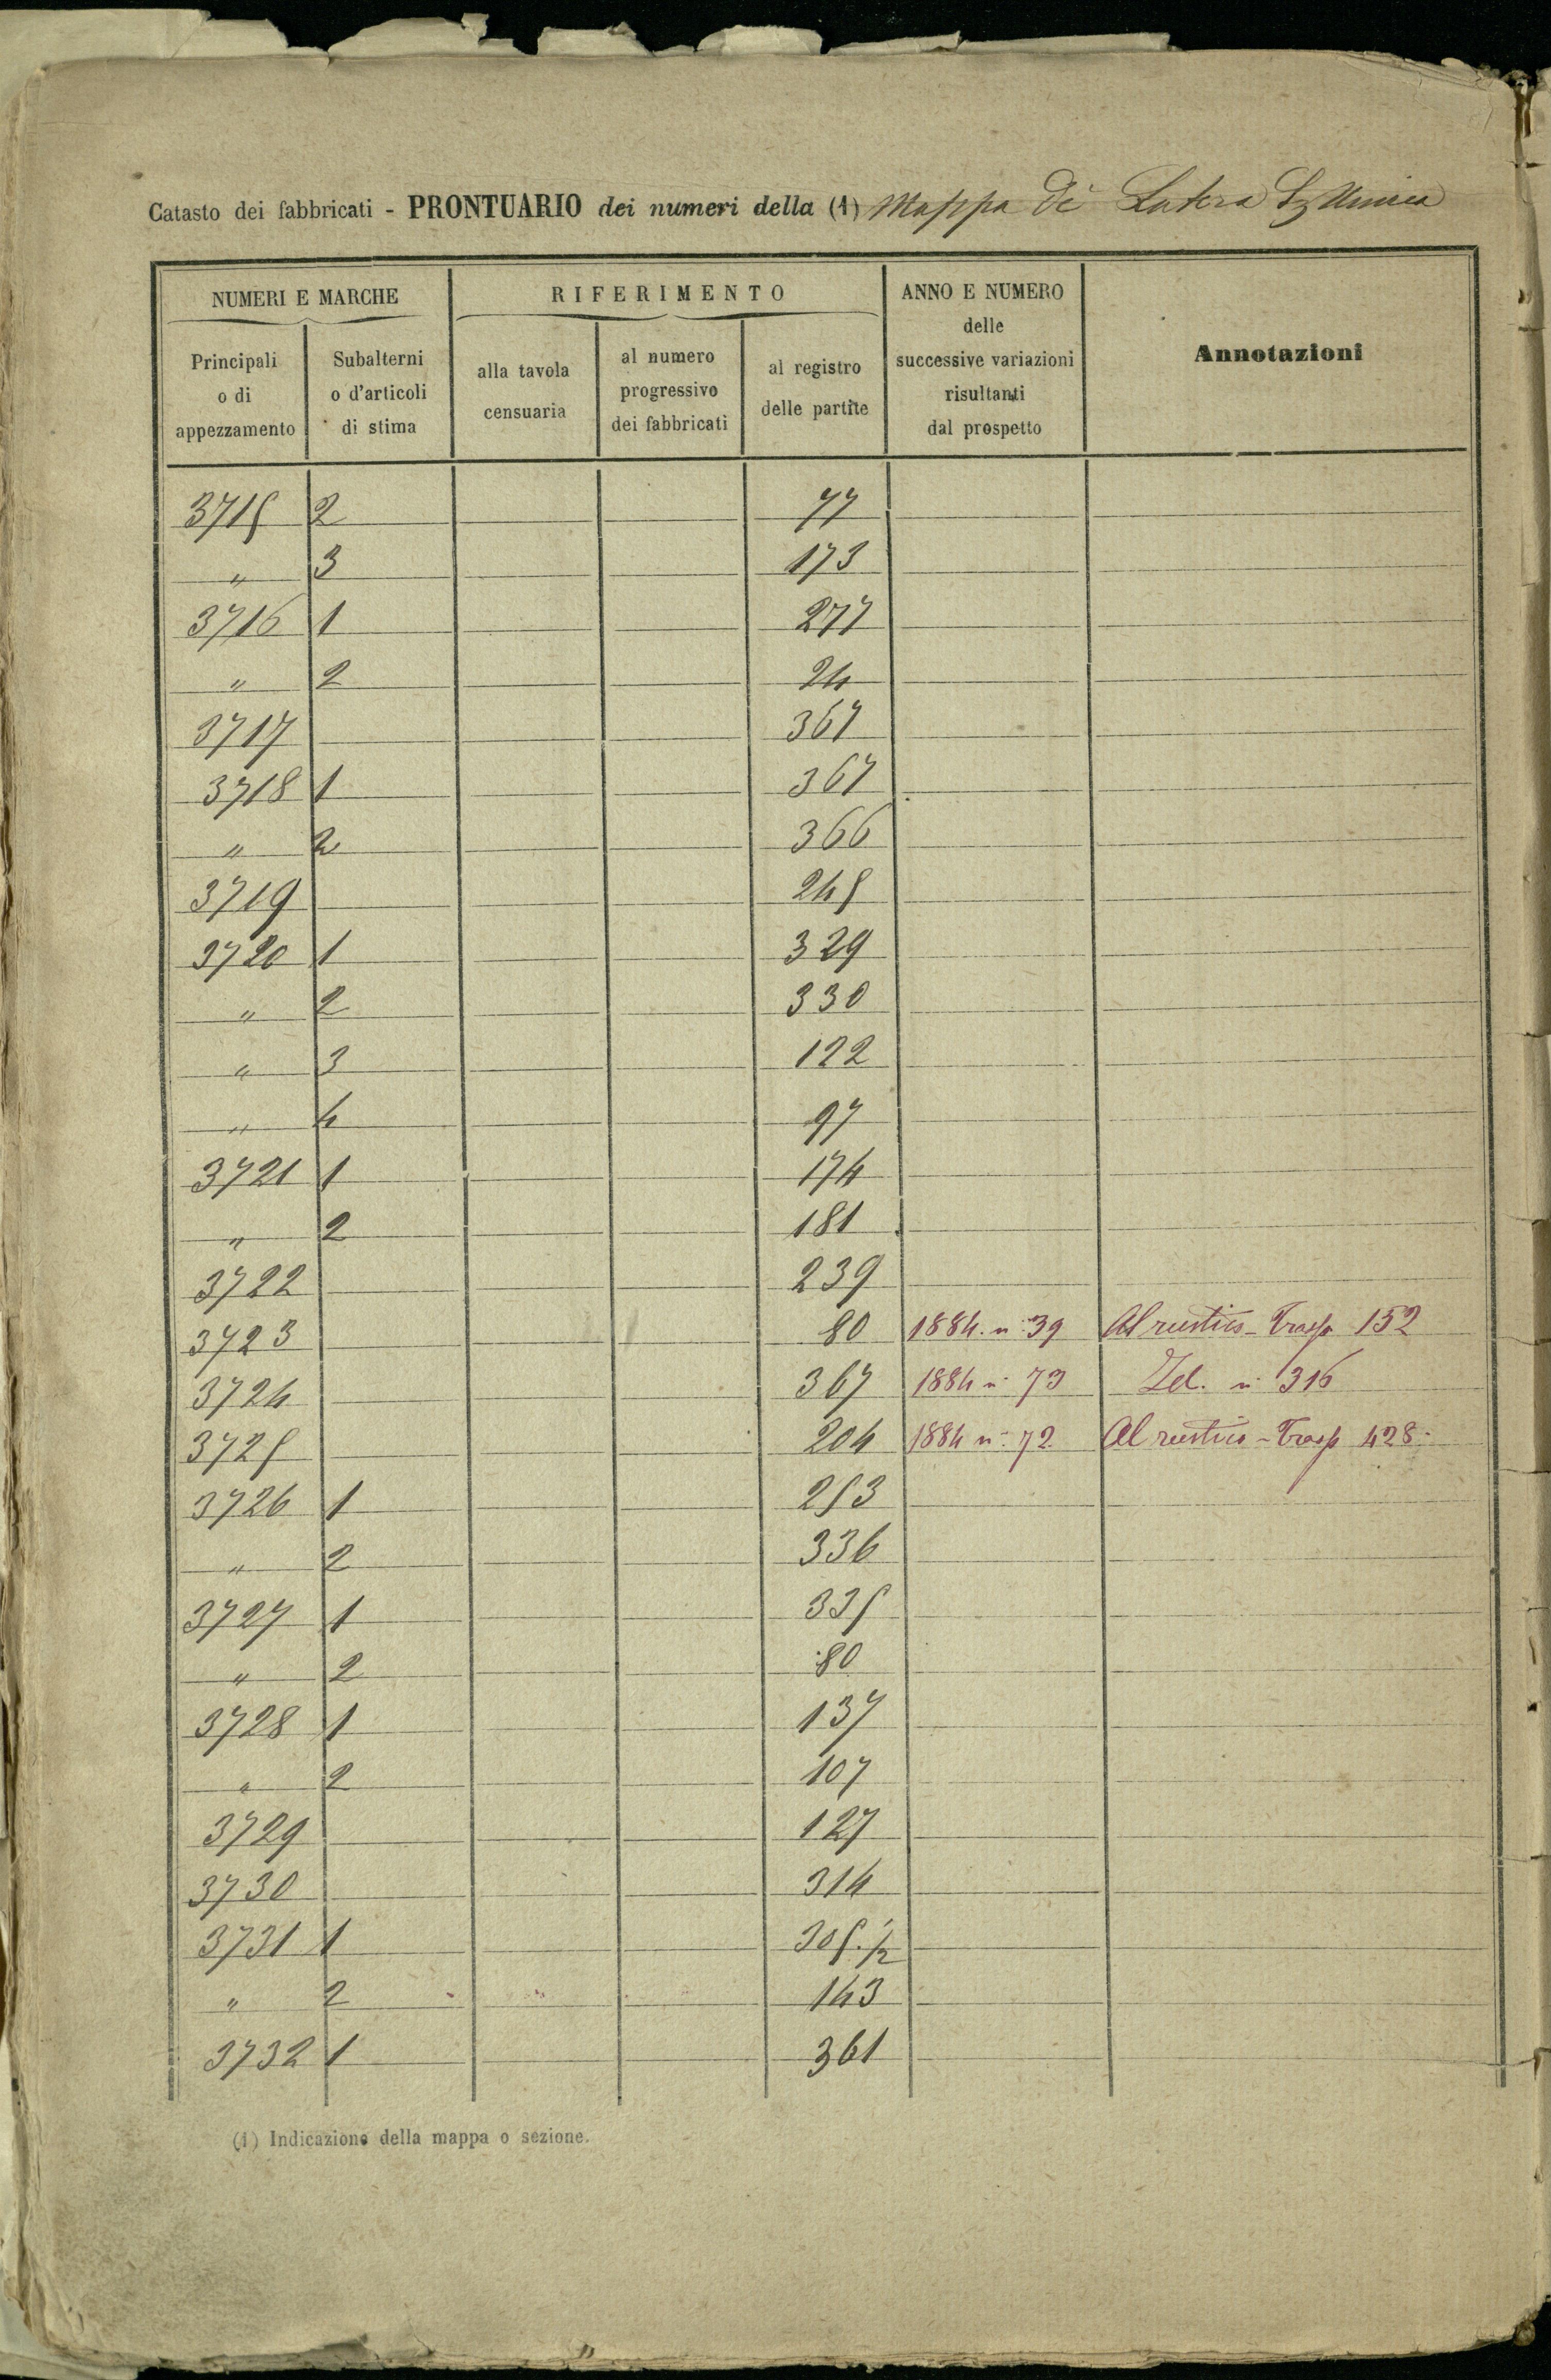 Catasto dei fabbricati - PRONTUARIO dei numeri della (1) Mappa di Latera Sz Unica
NUMERI E MARCHE
RIFERIMENTO
ANNO E NUMERO
delle
successive variazioni
risultanti
dal prospetto
Annotazioni
Principali
o di
appezzamento
Subalterni
o d'articoli
di stima
alla tavola
censuaria
al numero
progressivo
dei fabbricati
al registro
delle partite
3715 2 77
" 3 173
3716 1 277
" 2 24
3717 367
3718 1 367
" 2 366
3719 245
3720 1 329
" 2 330
" 3 122
" 4 97
3721 1 174
" 2 181
3722 239
3723 80 1884. n: 39 Al rustico - Trasp 152
3724 367 1884 n: 73 Id. n: 316
3725 204 1884 n: 72 Al rustico - Trasp 428
3726 1 253
" 2 336
3727 1 335
" 2 80
3728 1 137
" 2 107
3729 127
3730 314
3731 1 305.1/2
" 2 143
3732 1 361
(1) Indicazione della mappa o sezione.